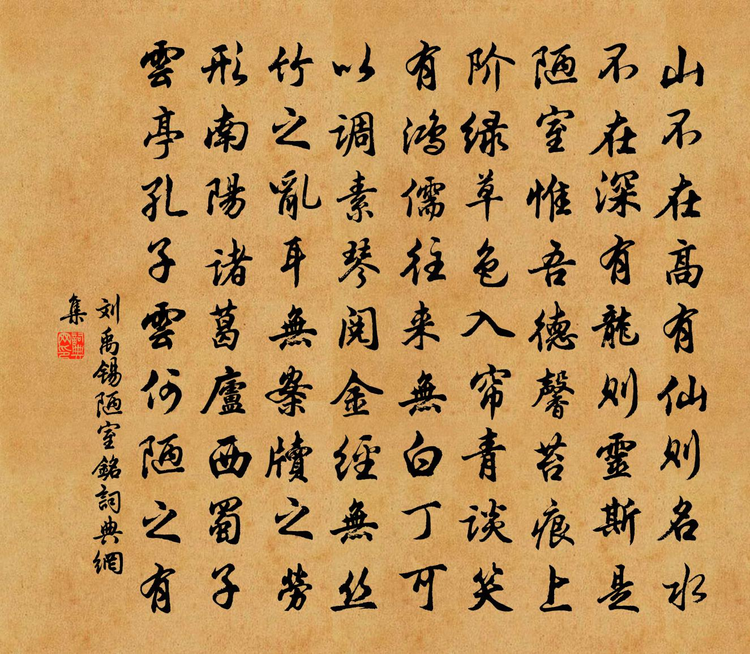 山不在高有仙则名水
不在深有龍则靈斯是
陋室惟吾德馨苔痕上
阶绿草色入帘青谈笑
有鴻儒往来無白丁可
以調素琴閱金經無丝
竹之亂耳無案牘之劳
形南陽諸葛廬西蜀子
雲亭孔子雲何陋之有
刘禹锡陋室銘詞典網
集